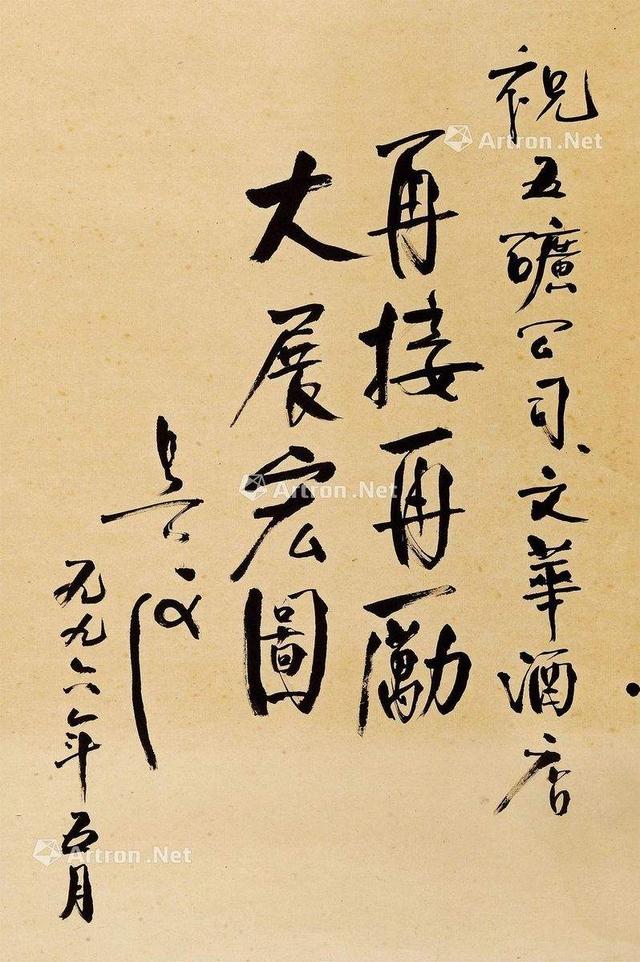 祝五礦公司、文華酒店
再接再勵
大展宏圖
吴
一九九六年五月
Artron.Net
Artron.Net
Artron.Net